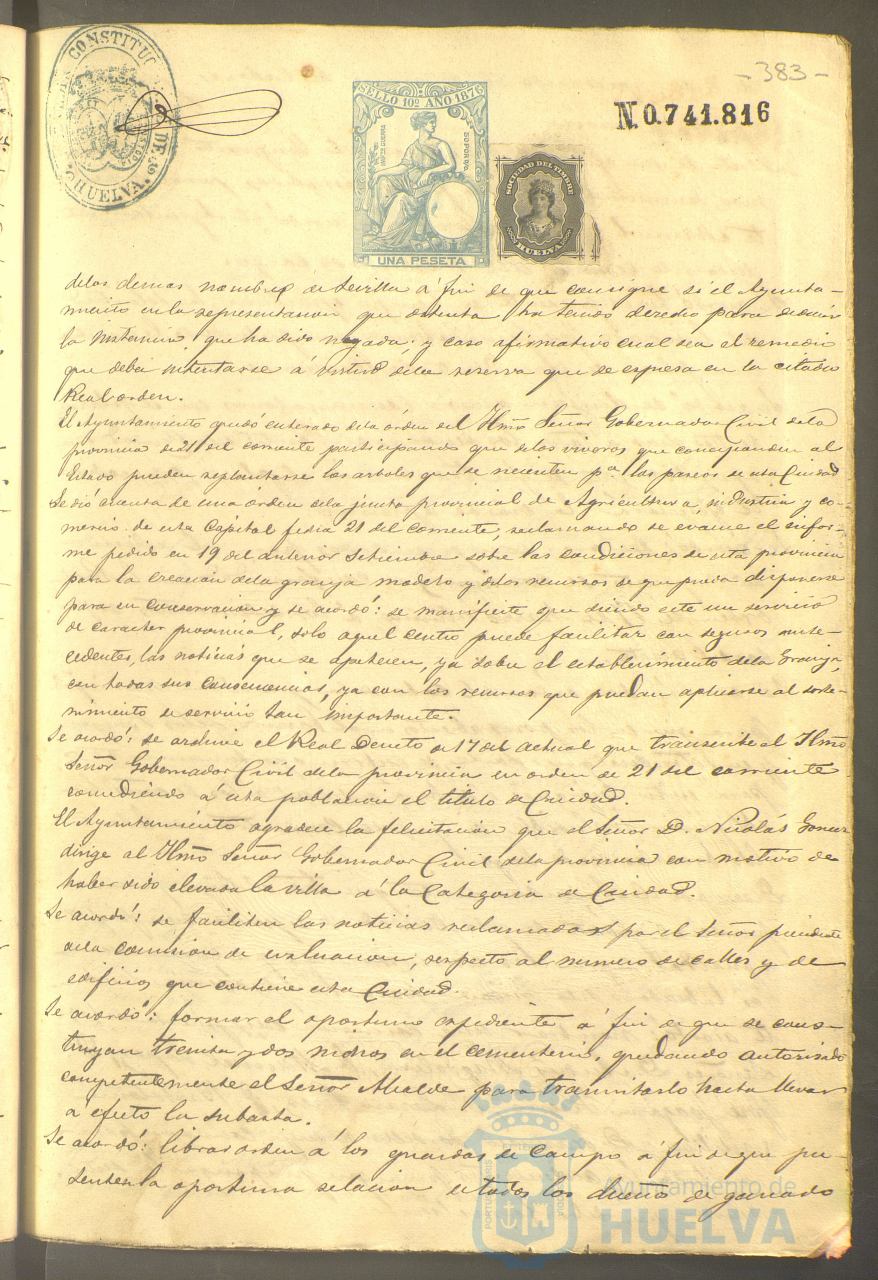 -383-
ALCALDIA CONSTITUCIONAL DE HUELVA.
SELLO 10º AÑO 1876
IMPTO DE GUERRA
50 POR %
UNA PESETA
SOCIEDAD DEL TIMBRE
HUELVA
N 0.741.816
delos demas nombrex de Sevilla á fin de que consigne si el Ayunta-
miento en la representacion que ostenta ha tenido derecho para deducir
la instancia que ha sido negada; y caso afirmativo cual sea el remedio
que deba intentarse á virtud dela reserva que se espresa en la citada
Real orden.
El Ayuntamiento quedó enterado dela órden del Ylmo Señor Gobernador Civil dela
provincia de 21 del corriente participando que delos viveros que corresponden al
Estado pueden replantarse los arboles que se necesiten pa. los paseos de esta Ciudad
Se dió cuenta de una orden dela junta provincial de Agricultura, industria y co-
mercio de esta Capital fecha 21 del corriente, reclamando se evacue el infor-
me pedido en 19 del anterior Setiembre sobre las condiciones de esta provincia
para la creacion dela granja modelo y delos recursos de que pueda disponerse
para su conservacion y se acordó: se manifieste que siendo este un servicio
de caracter provincial, solo aquel centro puede facilitar con seguros ante-
cedentes, las noticias que se apetecen, ya sobre el establecimiento dela Granja,
con todas sus consecuencias, ya con los recursos que puedan aplicarse al soste-
nimiento de servicio tan importante.
Se acordó: se archive el Real Decreto de 17 del actual que transcribe el Ylmo
Señor Gobernador Civil dela provincia en orden de 21 del corriente
concediendo á esta poblacion el título de Ciudad.
El Ayuntamiento agradece la felicitacion que el Señor D. Nicolás Gomez
dirige al Ylmo Señor Gobernador Civil dela provincia con motivo de
haber sido elevada la villa á la Categoria de Ciudad.
Se acordó: se faciliten las noticias reclamadas por el Señor presidente
dela comision de evaluacion, respecto al numero de calles y de
edificios que contiene esta Ciudad.
Se acordó: formar el oportuno espediente á fin de que se cons-
truyan treinta y dos nichos en el cementerio, quedando autorizado
competentemente el Señor Alcalde para tramitarlo hasta llevar
a efecto la subasta.
Se acordó: librar orden á los guardas de campo á fin de que pre-
senten la oportuna relacion de todos los dueños de ganado
Ayuntamiento de
HUELVA